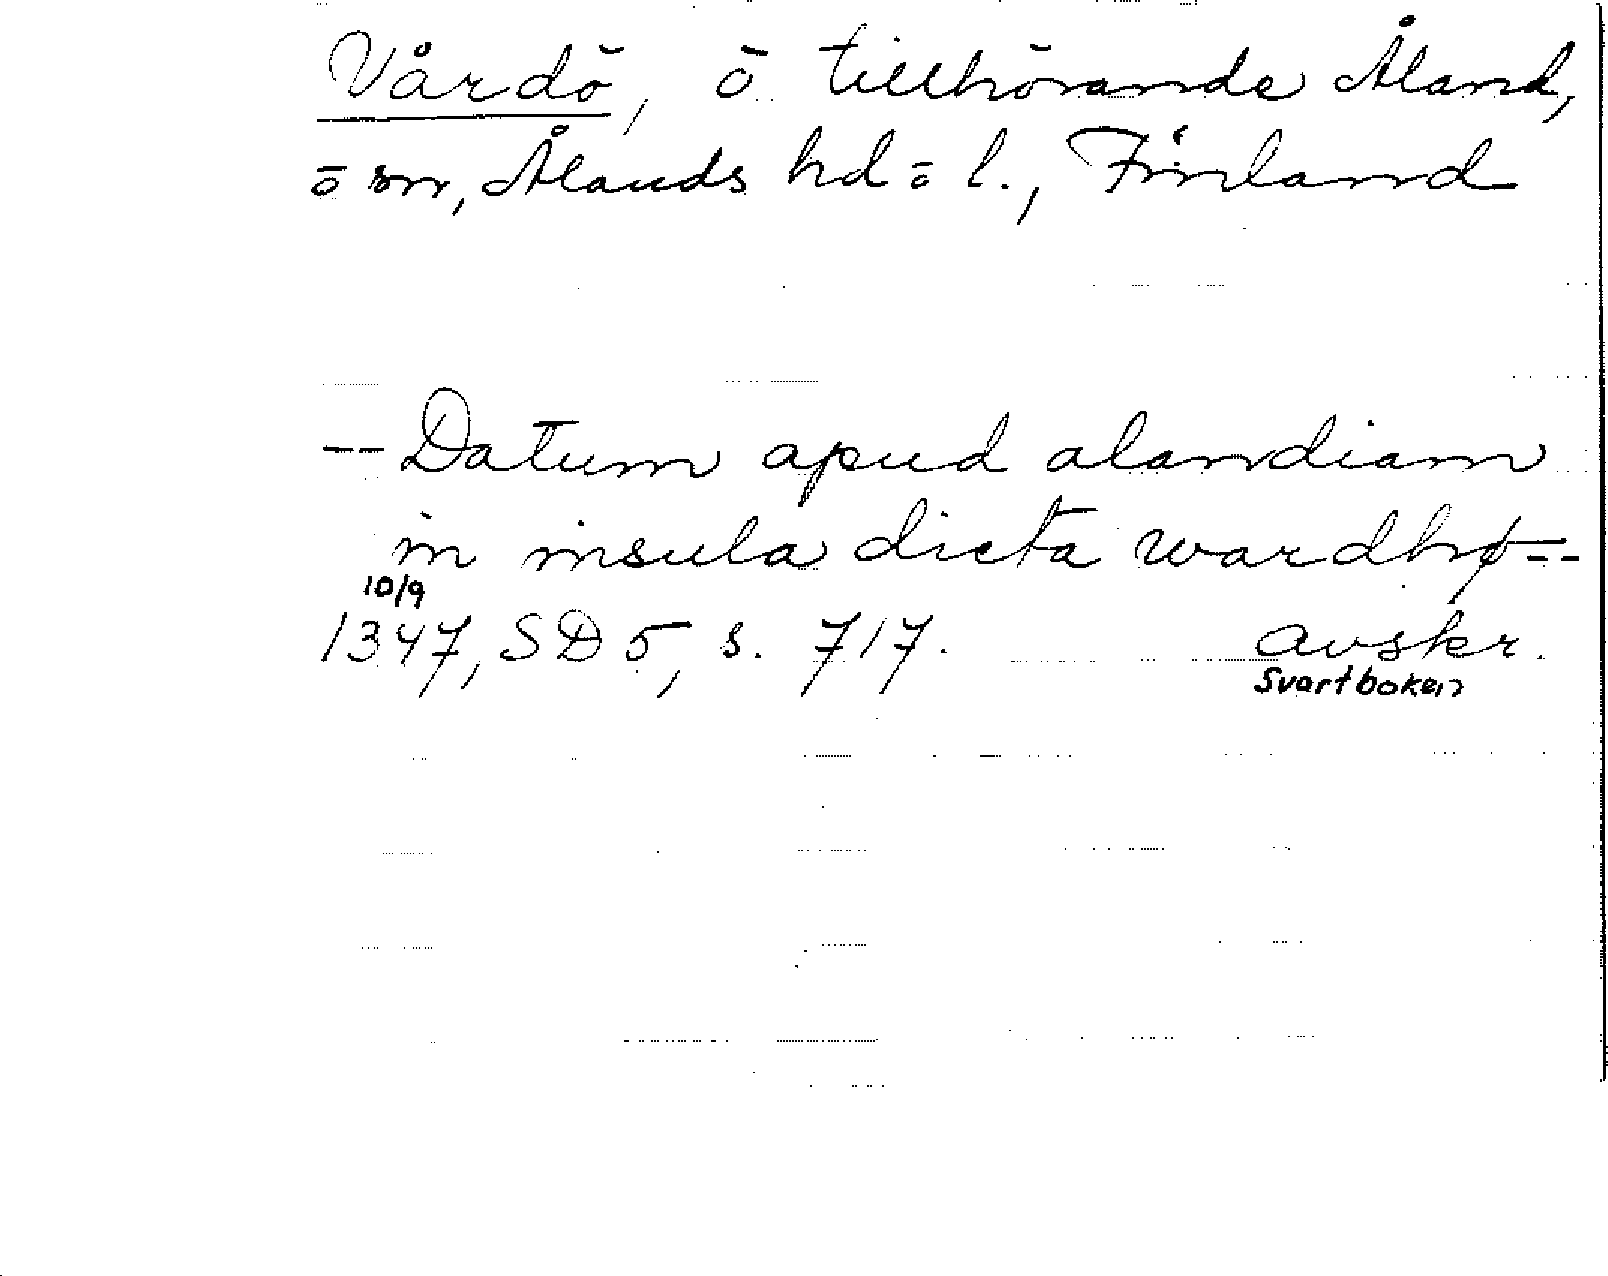 Vårdö, ö tillhörande Åland,
o sn, Ålands hd o l., Finland
-- Datum apud alandiam
in insula dicta wardhø --
10/9
1347, SD 5, s. 717. avskr.
Svartboken